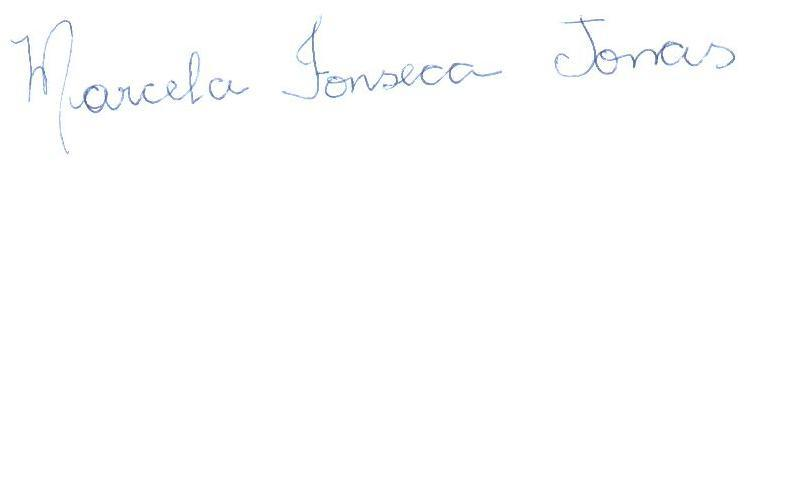 Marcela Fonseca Jonas